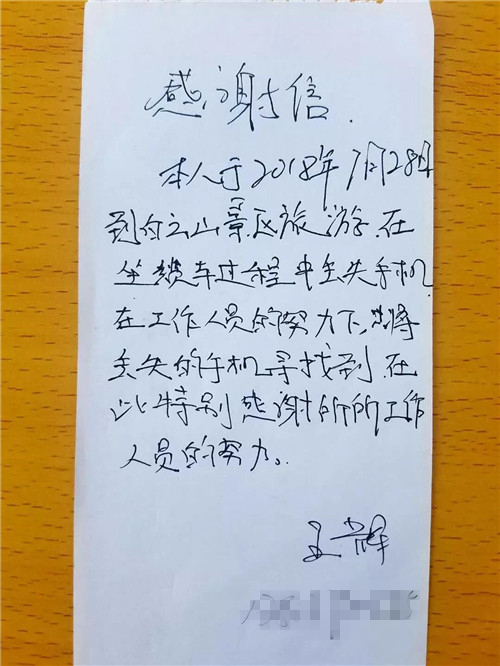 感谢信.
本人于2018年7月28日
到白云山景区旅游.在
坐缆车过程中丢失手机.
在工作人员的努力下,将
丢失的手机寻找到.在
此特别感谢所的工作
人员的努力。
王辉